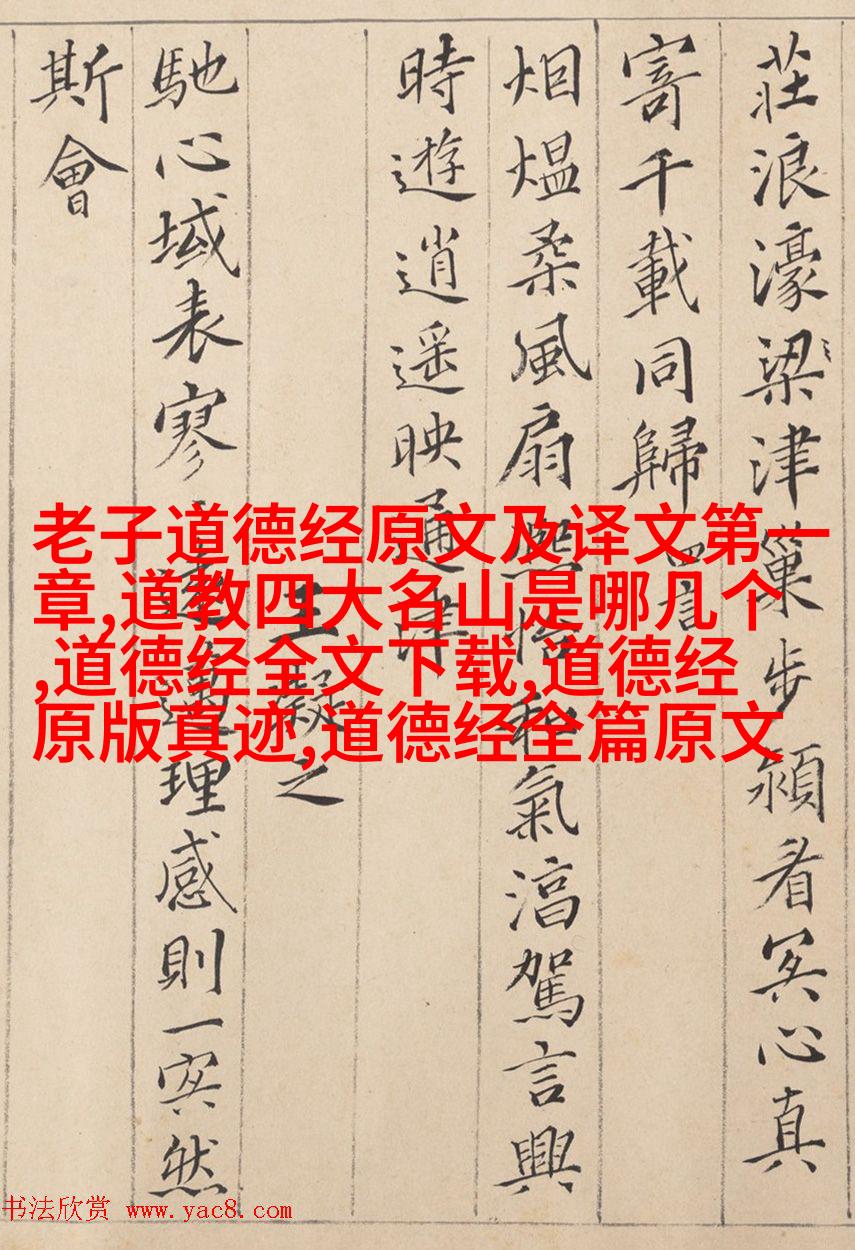 莊浪濠梁〻津巢步潁看冥心真
寄千載同歸 四言
烟煴柔風扇熙怡和氣淳駕言興
時遊逍遥映通津
王凝之
馳心域表寥〻遠邁理感則一冥然
斯會
老子道德经原文及译文第一
章,道教四大名山是哪几个
,道德经全文下载,道德经
原版真迹,道德经全篇原文
书法欣赏 www.yac8.com